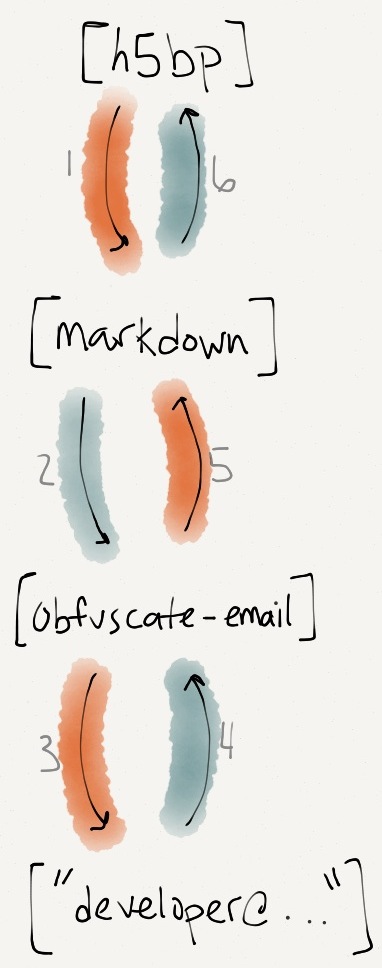 [h5bp]
1 6
[markdown]
2 5
[obfuscate-email]
3 4
["developer@..."]